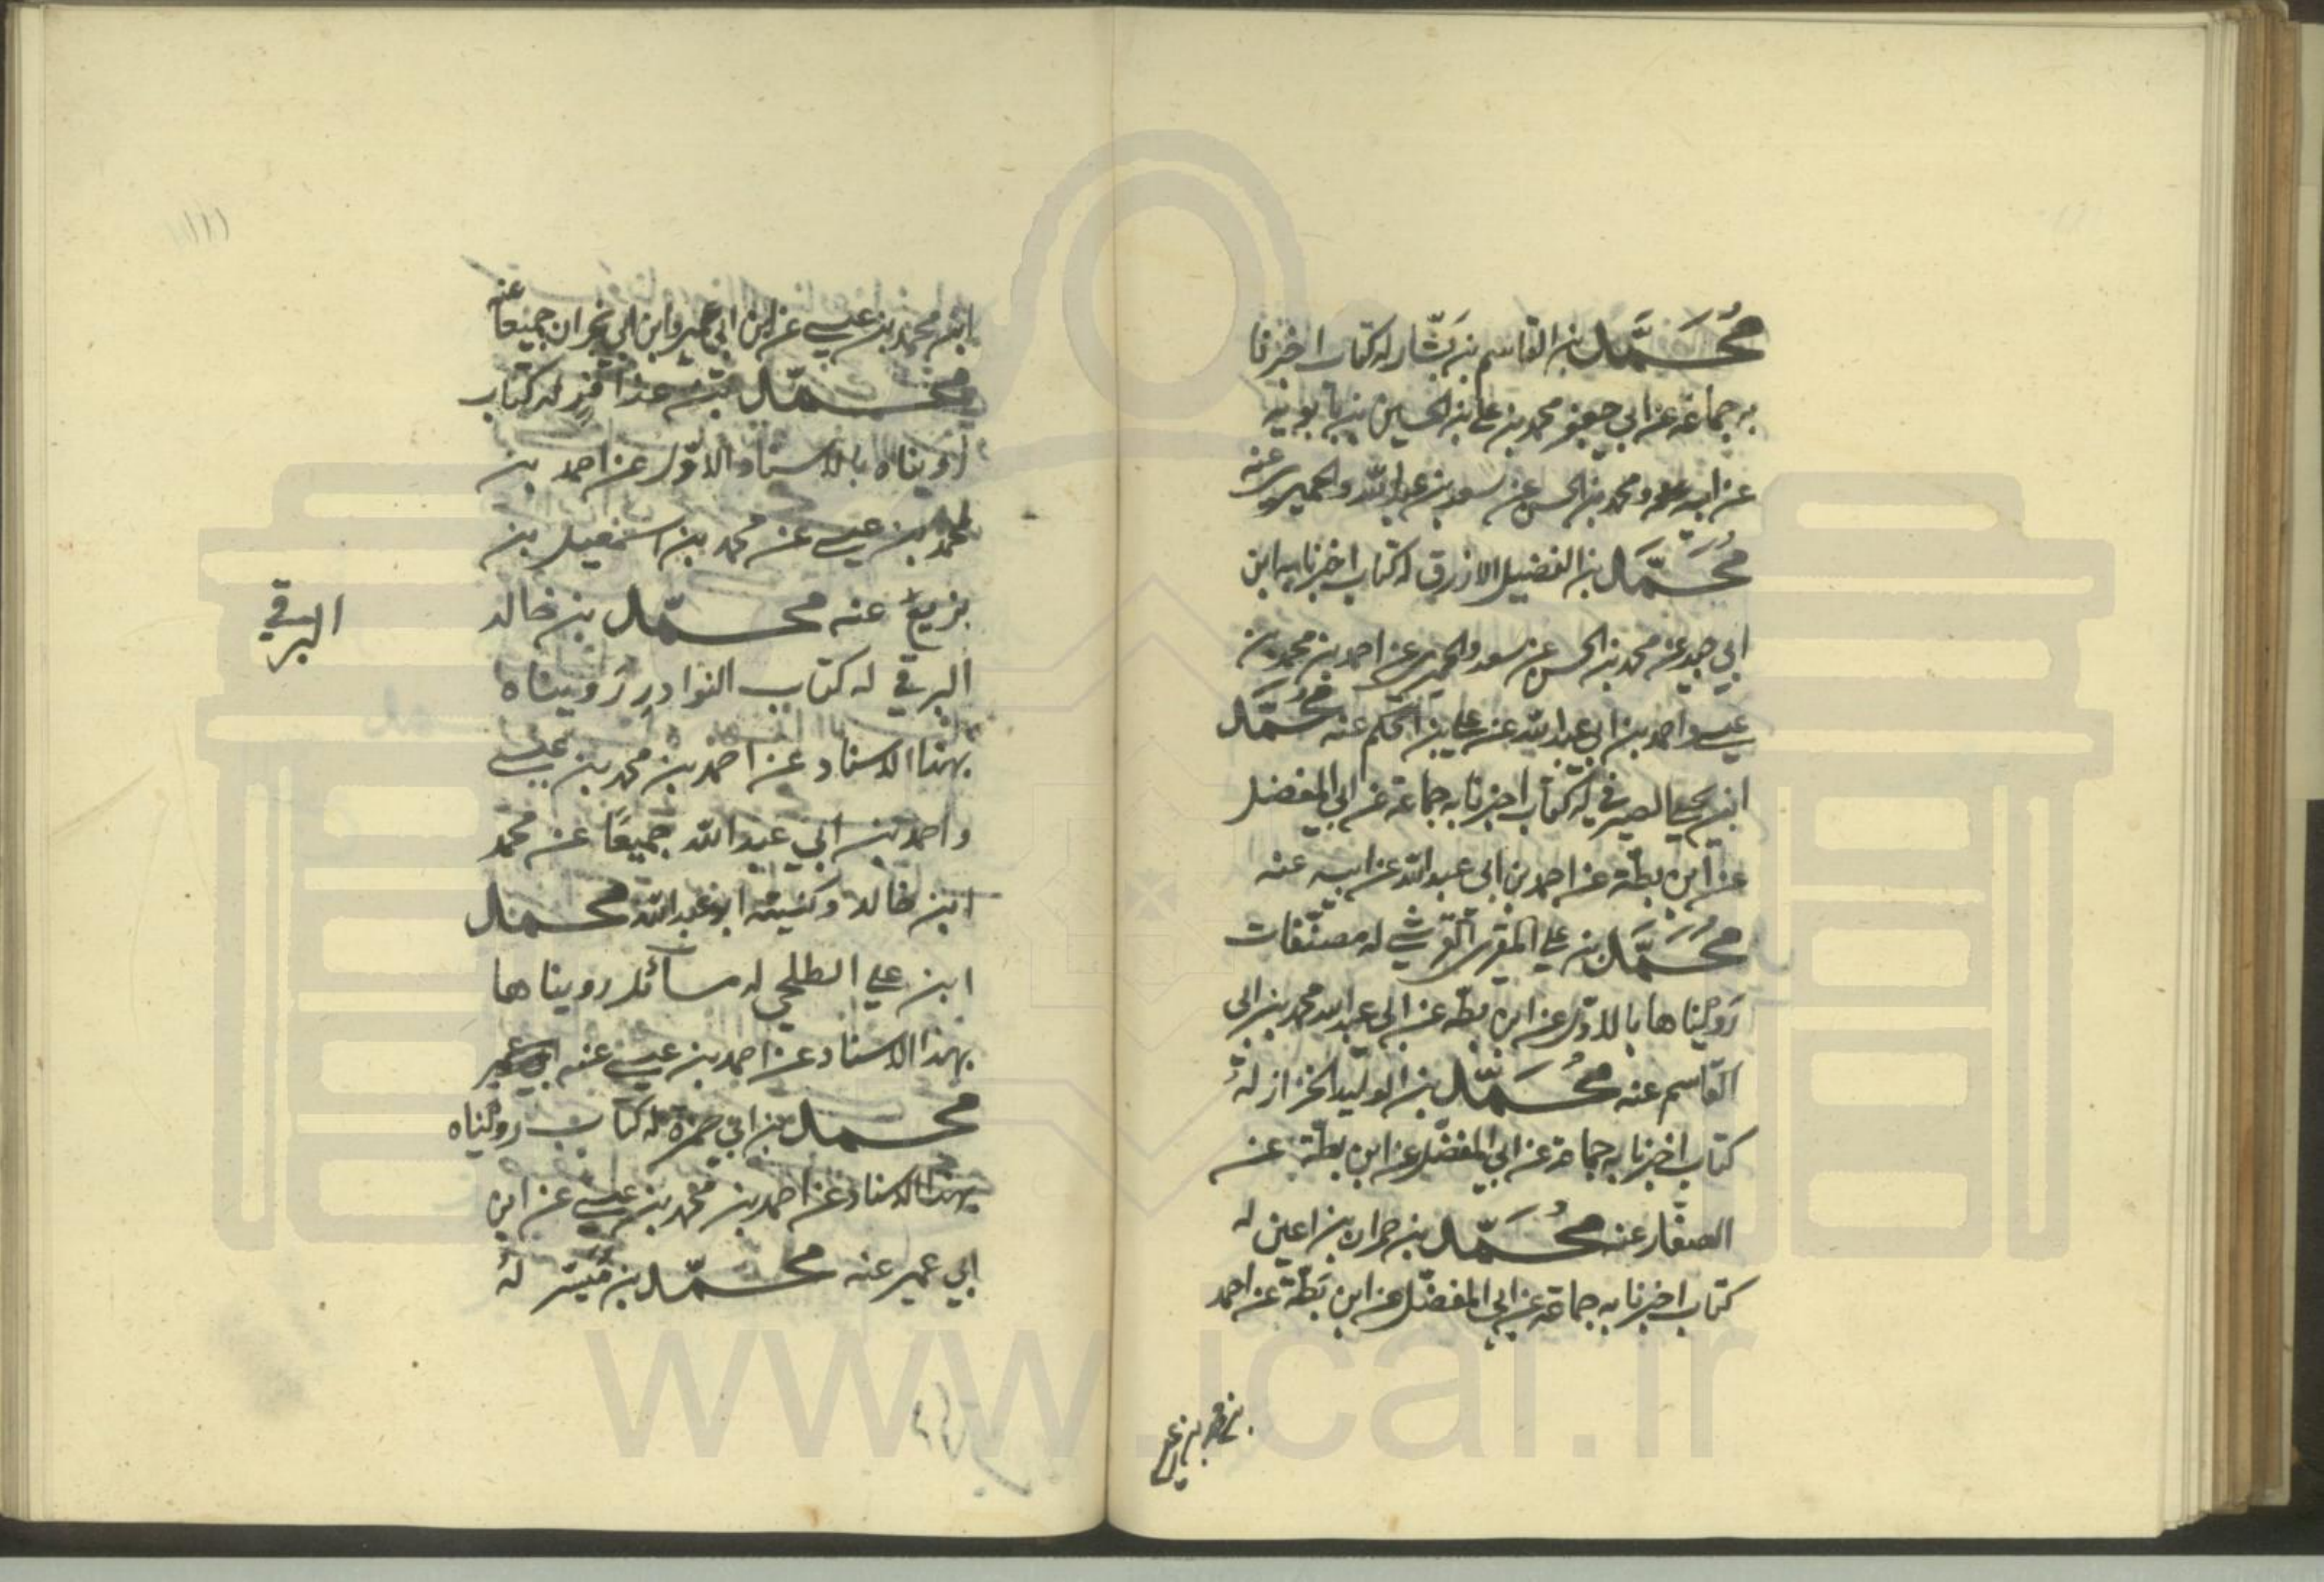 مُحَمَّد بن القاسم بن بَشّار له كتاب اخبرنا
به جماعة عن ابي جعفر محمد بن علي بن الحسين بن بابويه
عن ابيه ومحمد بن الحسن عن سعد بن عبد الله والحميري عنه
مُحَمَّد بن الفضيل الازرق له كتاب اخبرنا به ابن
ابي جيد عن محمد بن الحسن عن سعد والحميري عن احمد بن محمد بن
عيسى واحمد بن ابي عبد الله عن علي بن الحكم عنه مُحَمَّد
ابن يحيى الصيرفي له كتاب اخبرنا به جماعة عن ابي المفضل
عن ابن بطة عن احمد بن ابي عبد الله عن ابيه عنه
مُحَمَّد بن علي المقري القرشي له مصنّفات
رَوَيْناها بالاوّل عن ابن بطّة عن ابي عبد الله محمد بن ابي
القاسم عنه مُحَمَّد بن الوليد الخزاز لهُ
كتاب اخبرنا به جماعة عن ابي المفضّل عن ابن بطّة عن
الصفّار عنه مُحَمَّد بن حمران بن اعين له
كتاب اخبرنا به جماعة عن ابي المفضّل عن ابن بَطّة عن احمد
ابن محمد بن عيسى عن ابن ابي عمير وابن ابي نجران جميعًا عنه
محمّد بن عذافر له كتاب
رويناه بالاسناد الاوّل عن احمد بن
محمد بن عيسى عن محمد بن اسمعيل بن
بزيع عنه محمّد بن خالد
البرقي له كتاب النوادر رَويناه
البرقي
بهذا الاسناد عن احمد بن محمد بن عيسى
واحمد بن ابي عبد الله جميعًا عن محمد
ابن خالد وكنيته ابو عبد الله محمد
ابن علي الطلحي له مسائل رويناها
بهذا الاسناد عن احمد بن عيسى عنه
محمد بن ابي حمزة له كتاب رويْناه
بهذا الاسناد عن احمد بن محمد بن عيسى عن ابن
ابي عمير عنه محمّد بن مُيَسّر لهُ
www.icar.ir